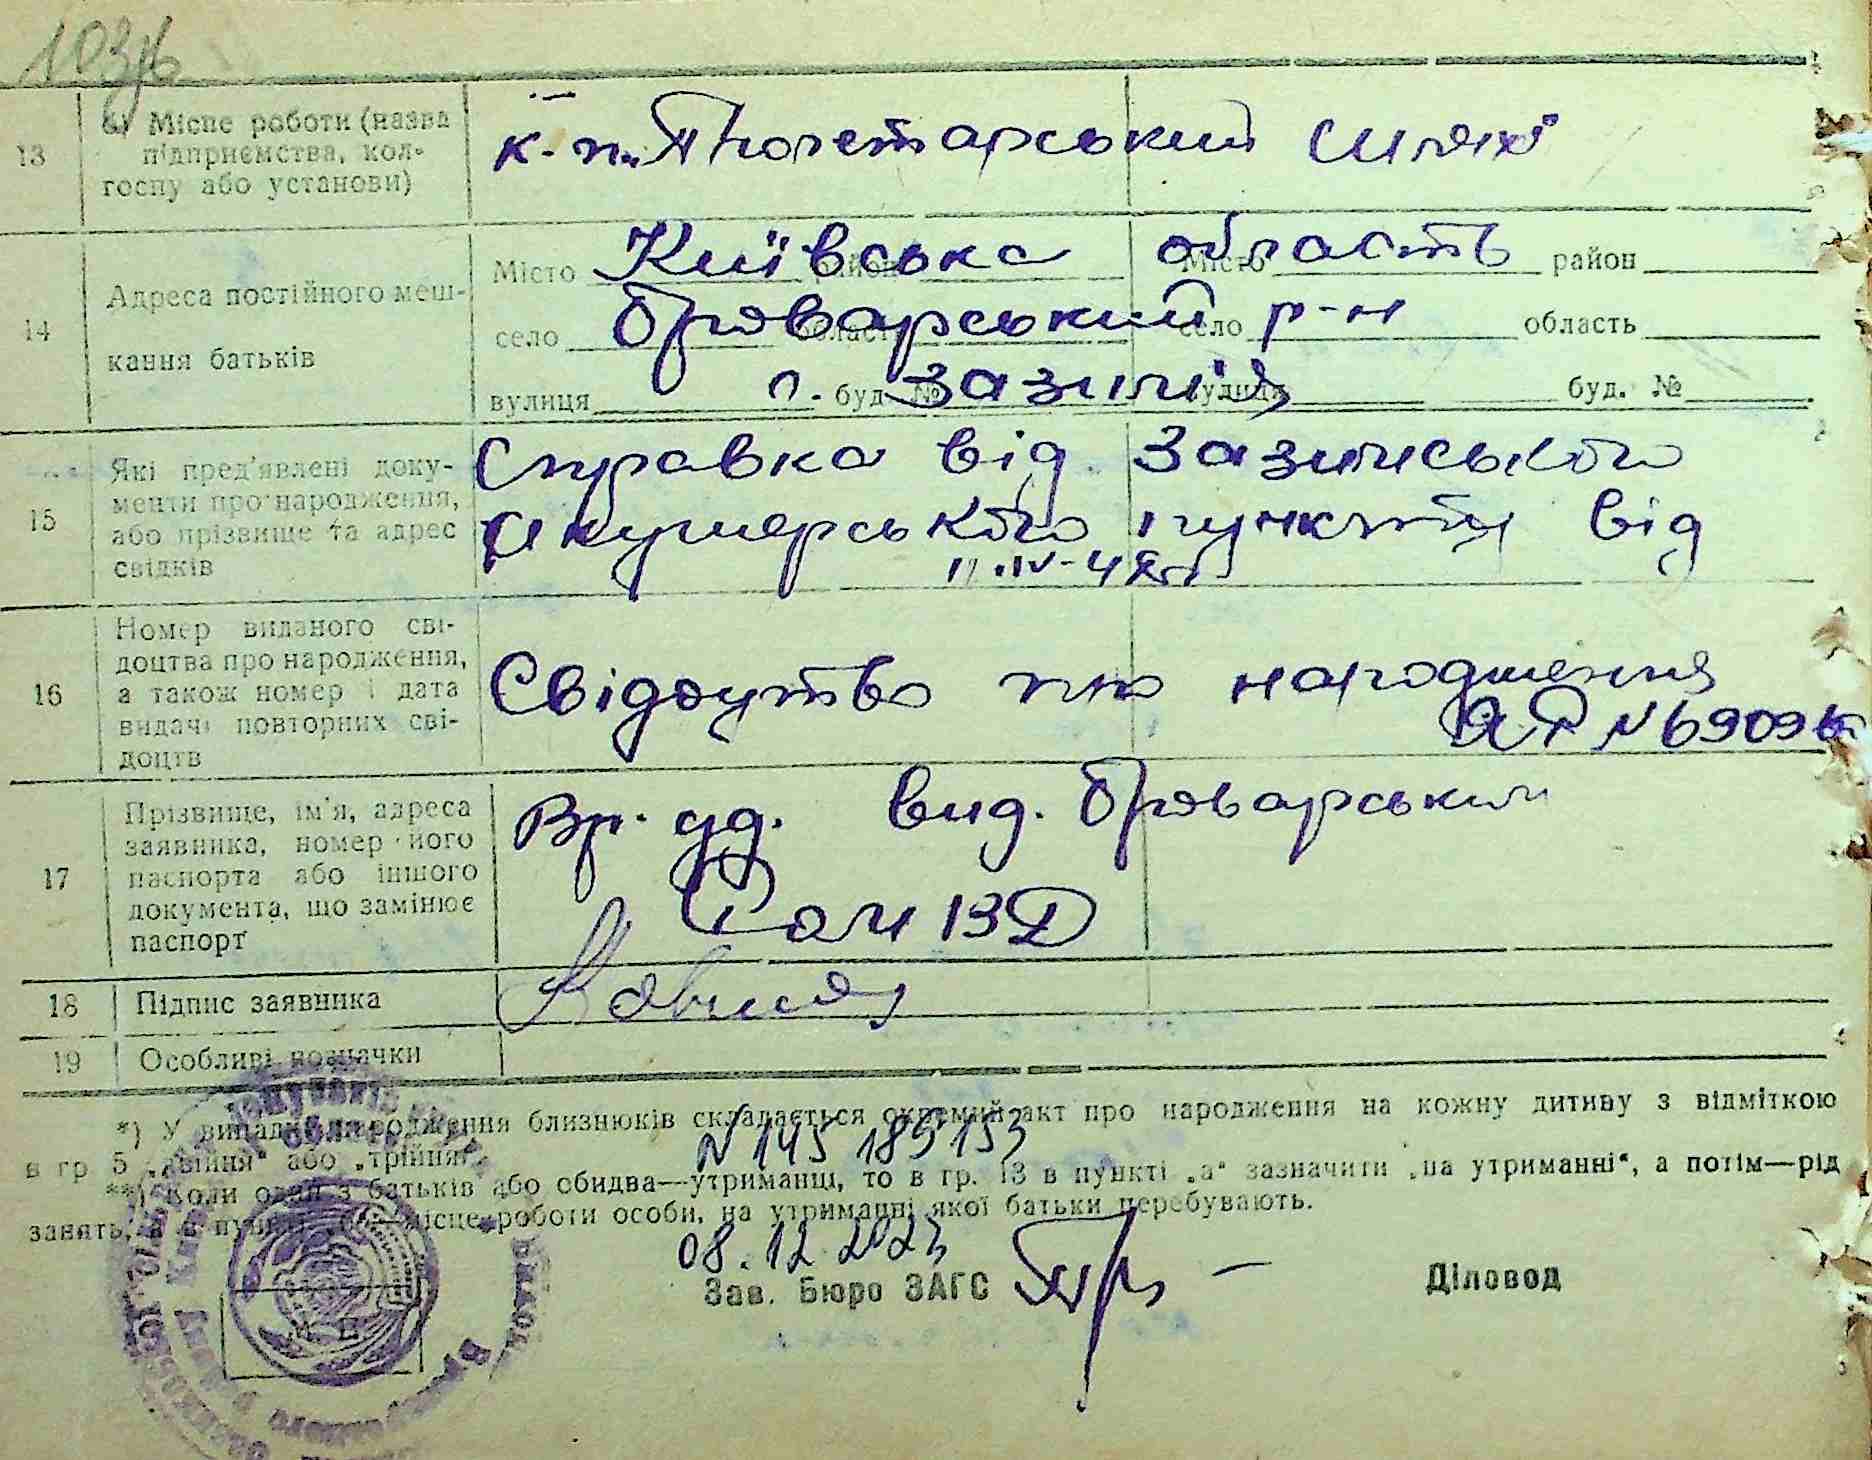 103/в
13 б) Місце роботи (назва підприємства, колгоспу або установи)
к-п „Пролетарський шлях"
14 Адреса постійного мешкання батьків
Місто район Місто район
Київська область
село область село область
Броварський р-н
вулиця буд. № вулиця буд. №
с. Зазимія
15 Які пред'явлені документи про народження, або прізвище та адрес свідків
Справка від Зазимського
Акушерського пункту від
11.IV-48
16 Номер виданого свідоцтва про народження, а також номер і дата видачі повторних свідоцтв
Свідоцтво про народження
N 69096
17 Прізвище, ім'я, адреса заявника, номер його паспорта або іншого документа, що замінює паспорт
Вр. уд. вид. Броварським
18 Підпис заявника
19 Особливі позначки
*) У випадку народження близнюків складається окремий акт про народження на кожну дитину з відміткою
N 145 185 153
в гр 5 „двійня" або „трійня".
**) Коли один з батьків або обидва—утриманці, то в гр. 13 в пункті „а" зазначити „на утриманні", а потім—рід
занять, а в пункті „б" місце роботи особи, на утриманні якої батьки перебувають.
08.12.2023
Зав. Бюро ЗАГС Діловод